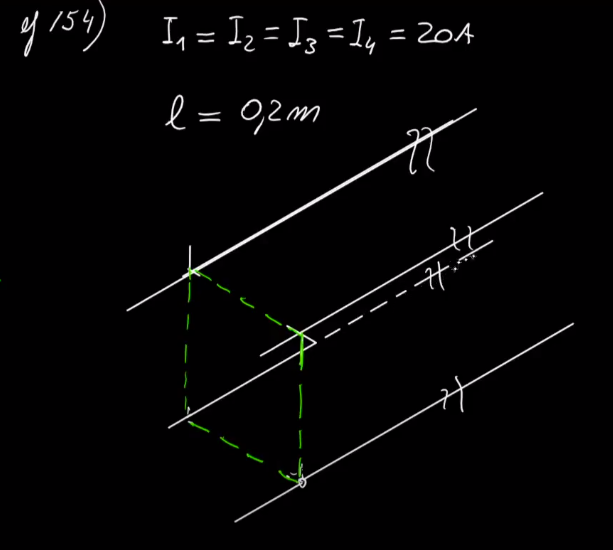 y 154) I₁ = I₂ = I₃ = I₄ = 20A
l = 0,2m